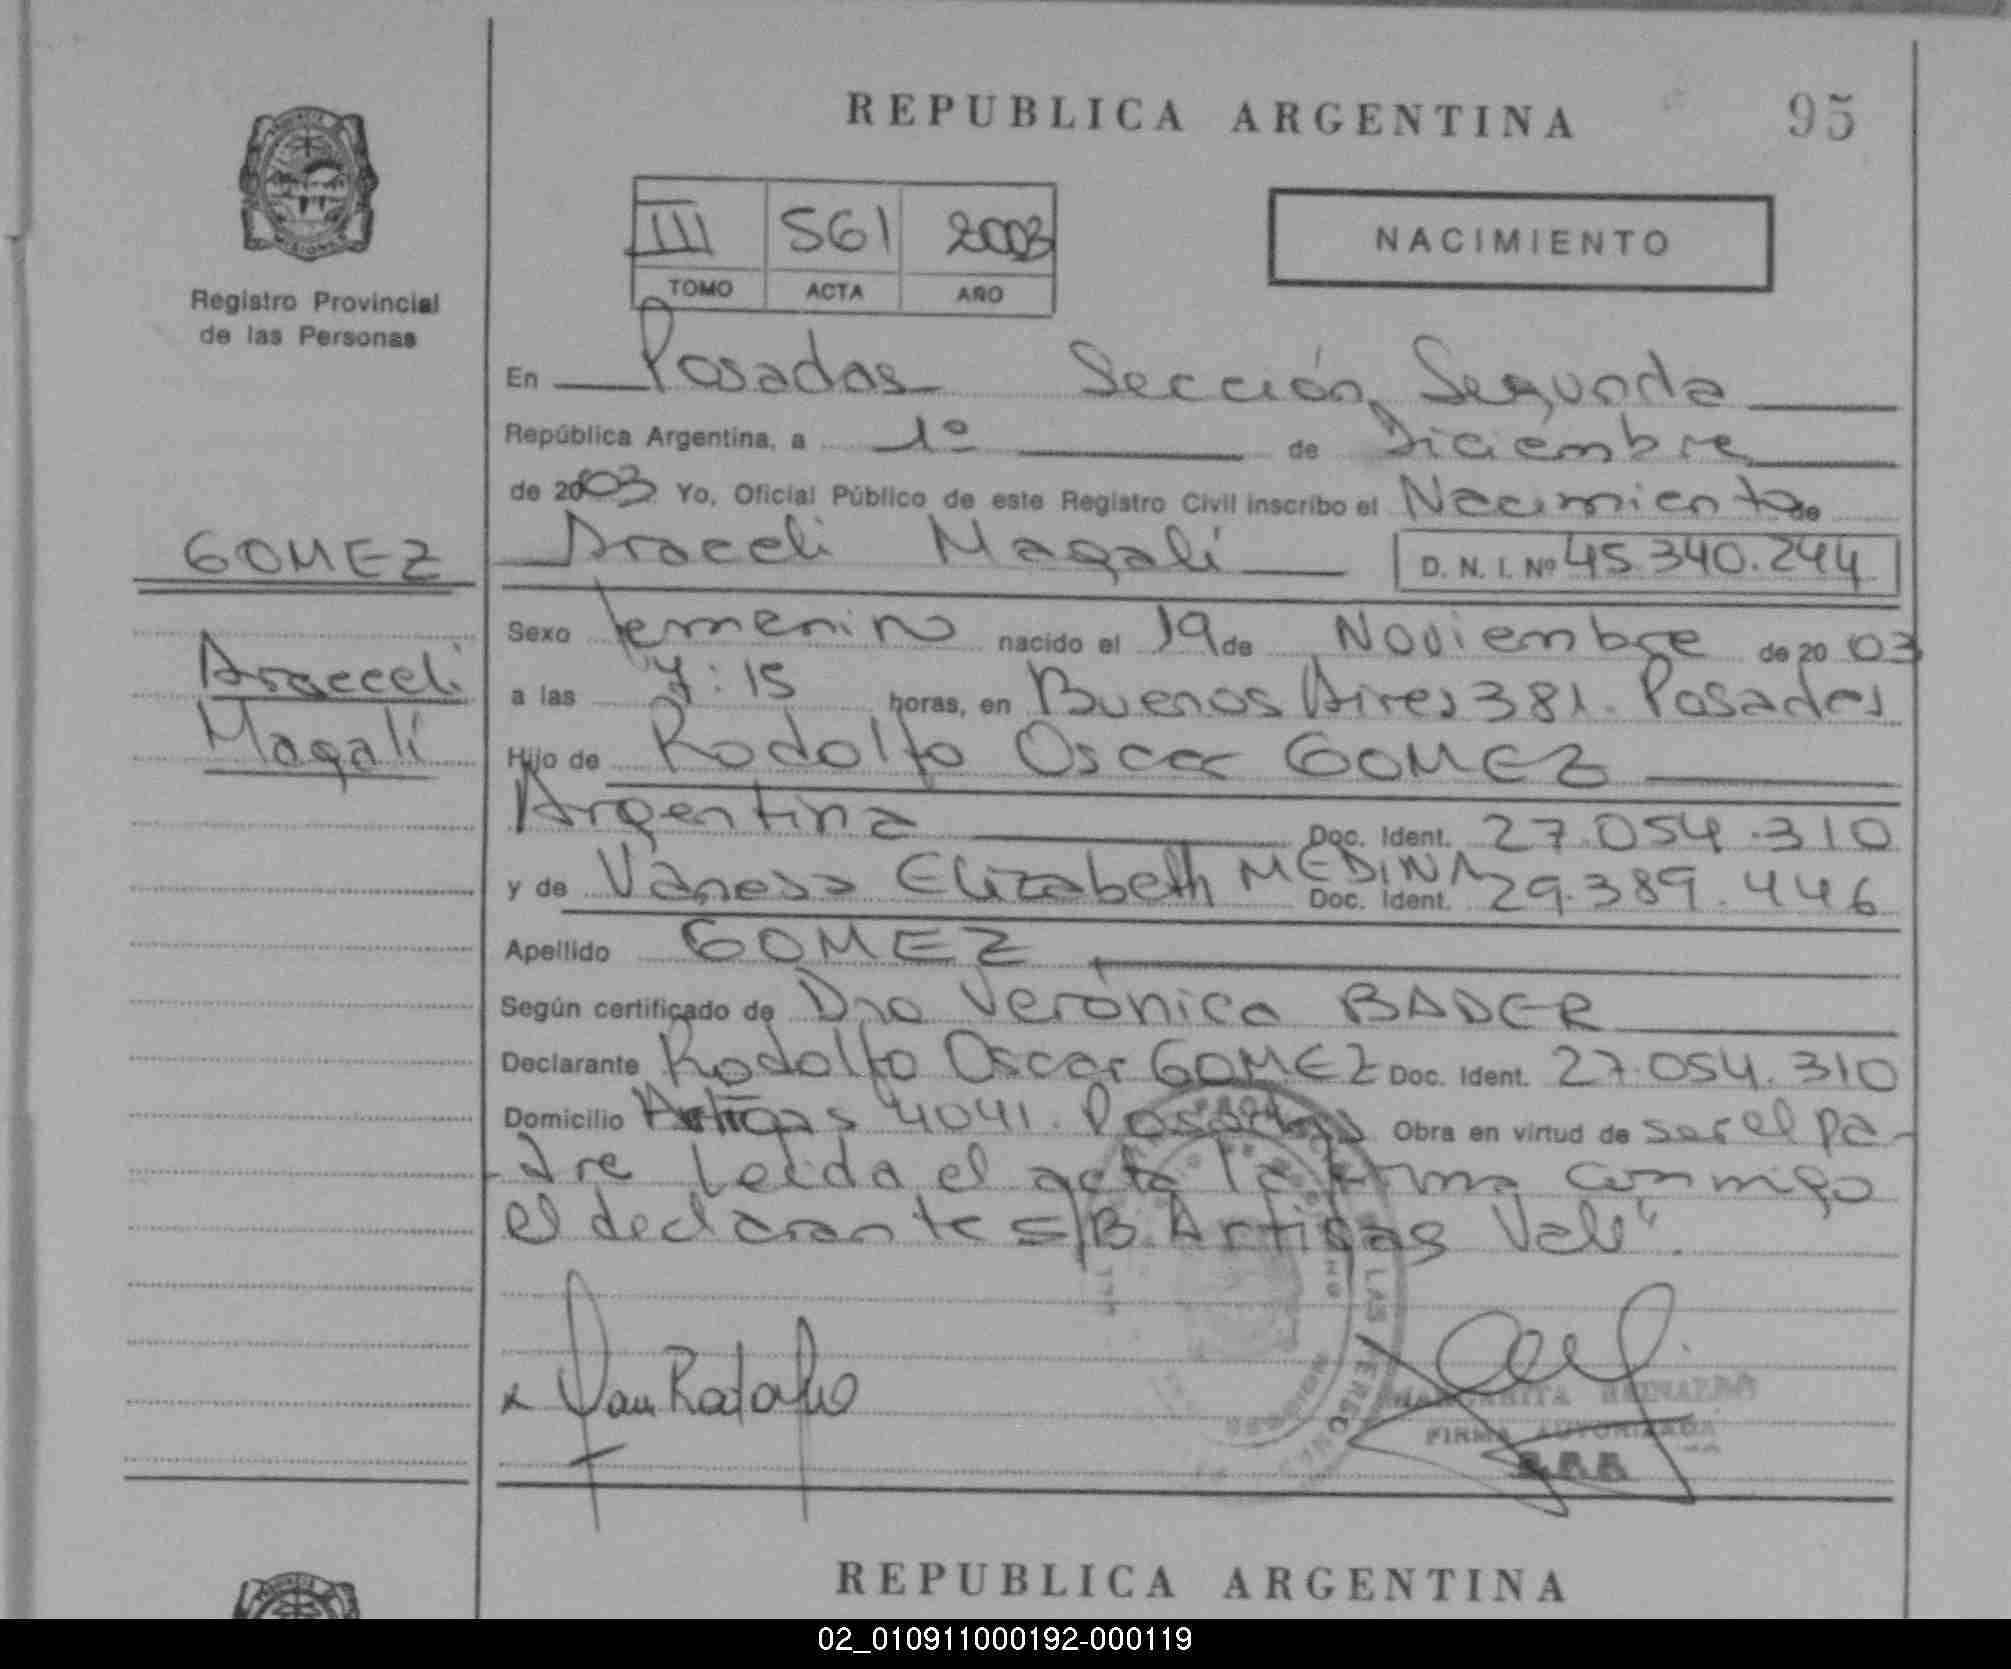 REPUBLICA ARGENTINA
95
III 561 2003
TOMO ACTA AÑO
NACIMIENTO
Registro Provincial
de las Personas
En Posadas Sección Segunda
República Argentina, a 1º de Diciembre
de 2003 Yo, Oficial Público de este Registro Civil inscribo el Nacimiento de
GOMEZ
Araceli Magalí D. N. I. Nº 45.340.244
Araceli
Magalí
Sexo femenino nacido el 19 de Noviembre de 2003
a las 7:15 horas, en Buenos Aires 381. Posadas
Hijo de Rodolfo Oscar GOMEZ
Argentina Doc. Ident. 27.054.310
y de Vanesa Elizabeth MEDINA Doc. Ident. 29.389.446
Apellido GOMEZ
Según certificado de Dra Verónica BADER
Declarante Rodolfo Oscar GOMEZ Doc. Ident. 27.054.310
Domicilio Artigas 4041. Posadas Obra en virtud de ser el pa-
dre Leida el acta la firma conmigo
el declarante S/B. Artigas Vale".
FIRMA AUTORIZADA
REPUBLICA ARGENTINA
02_010911000192-000119